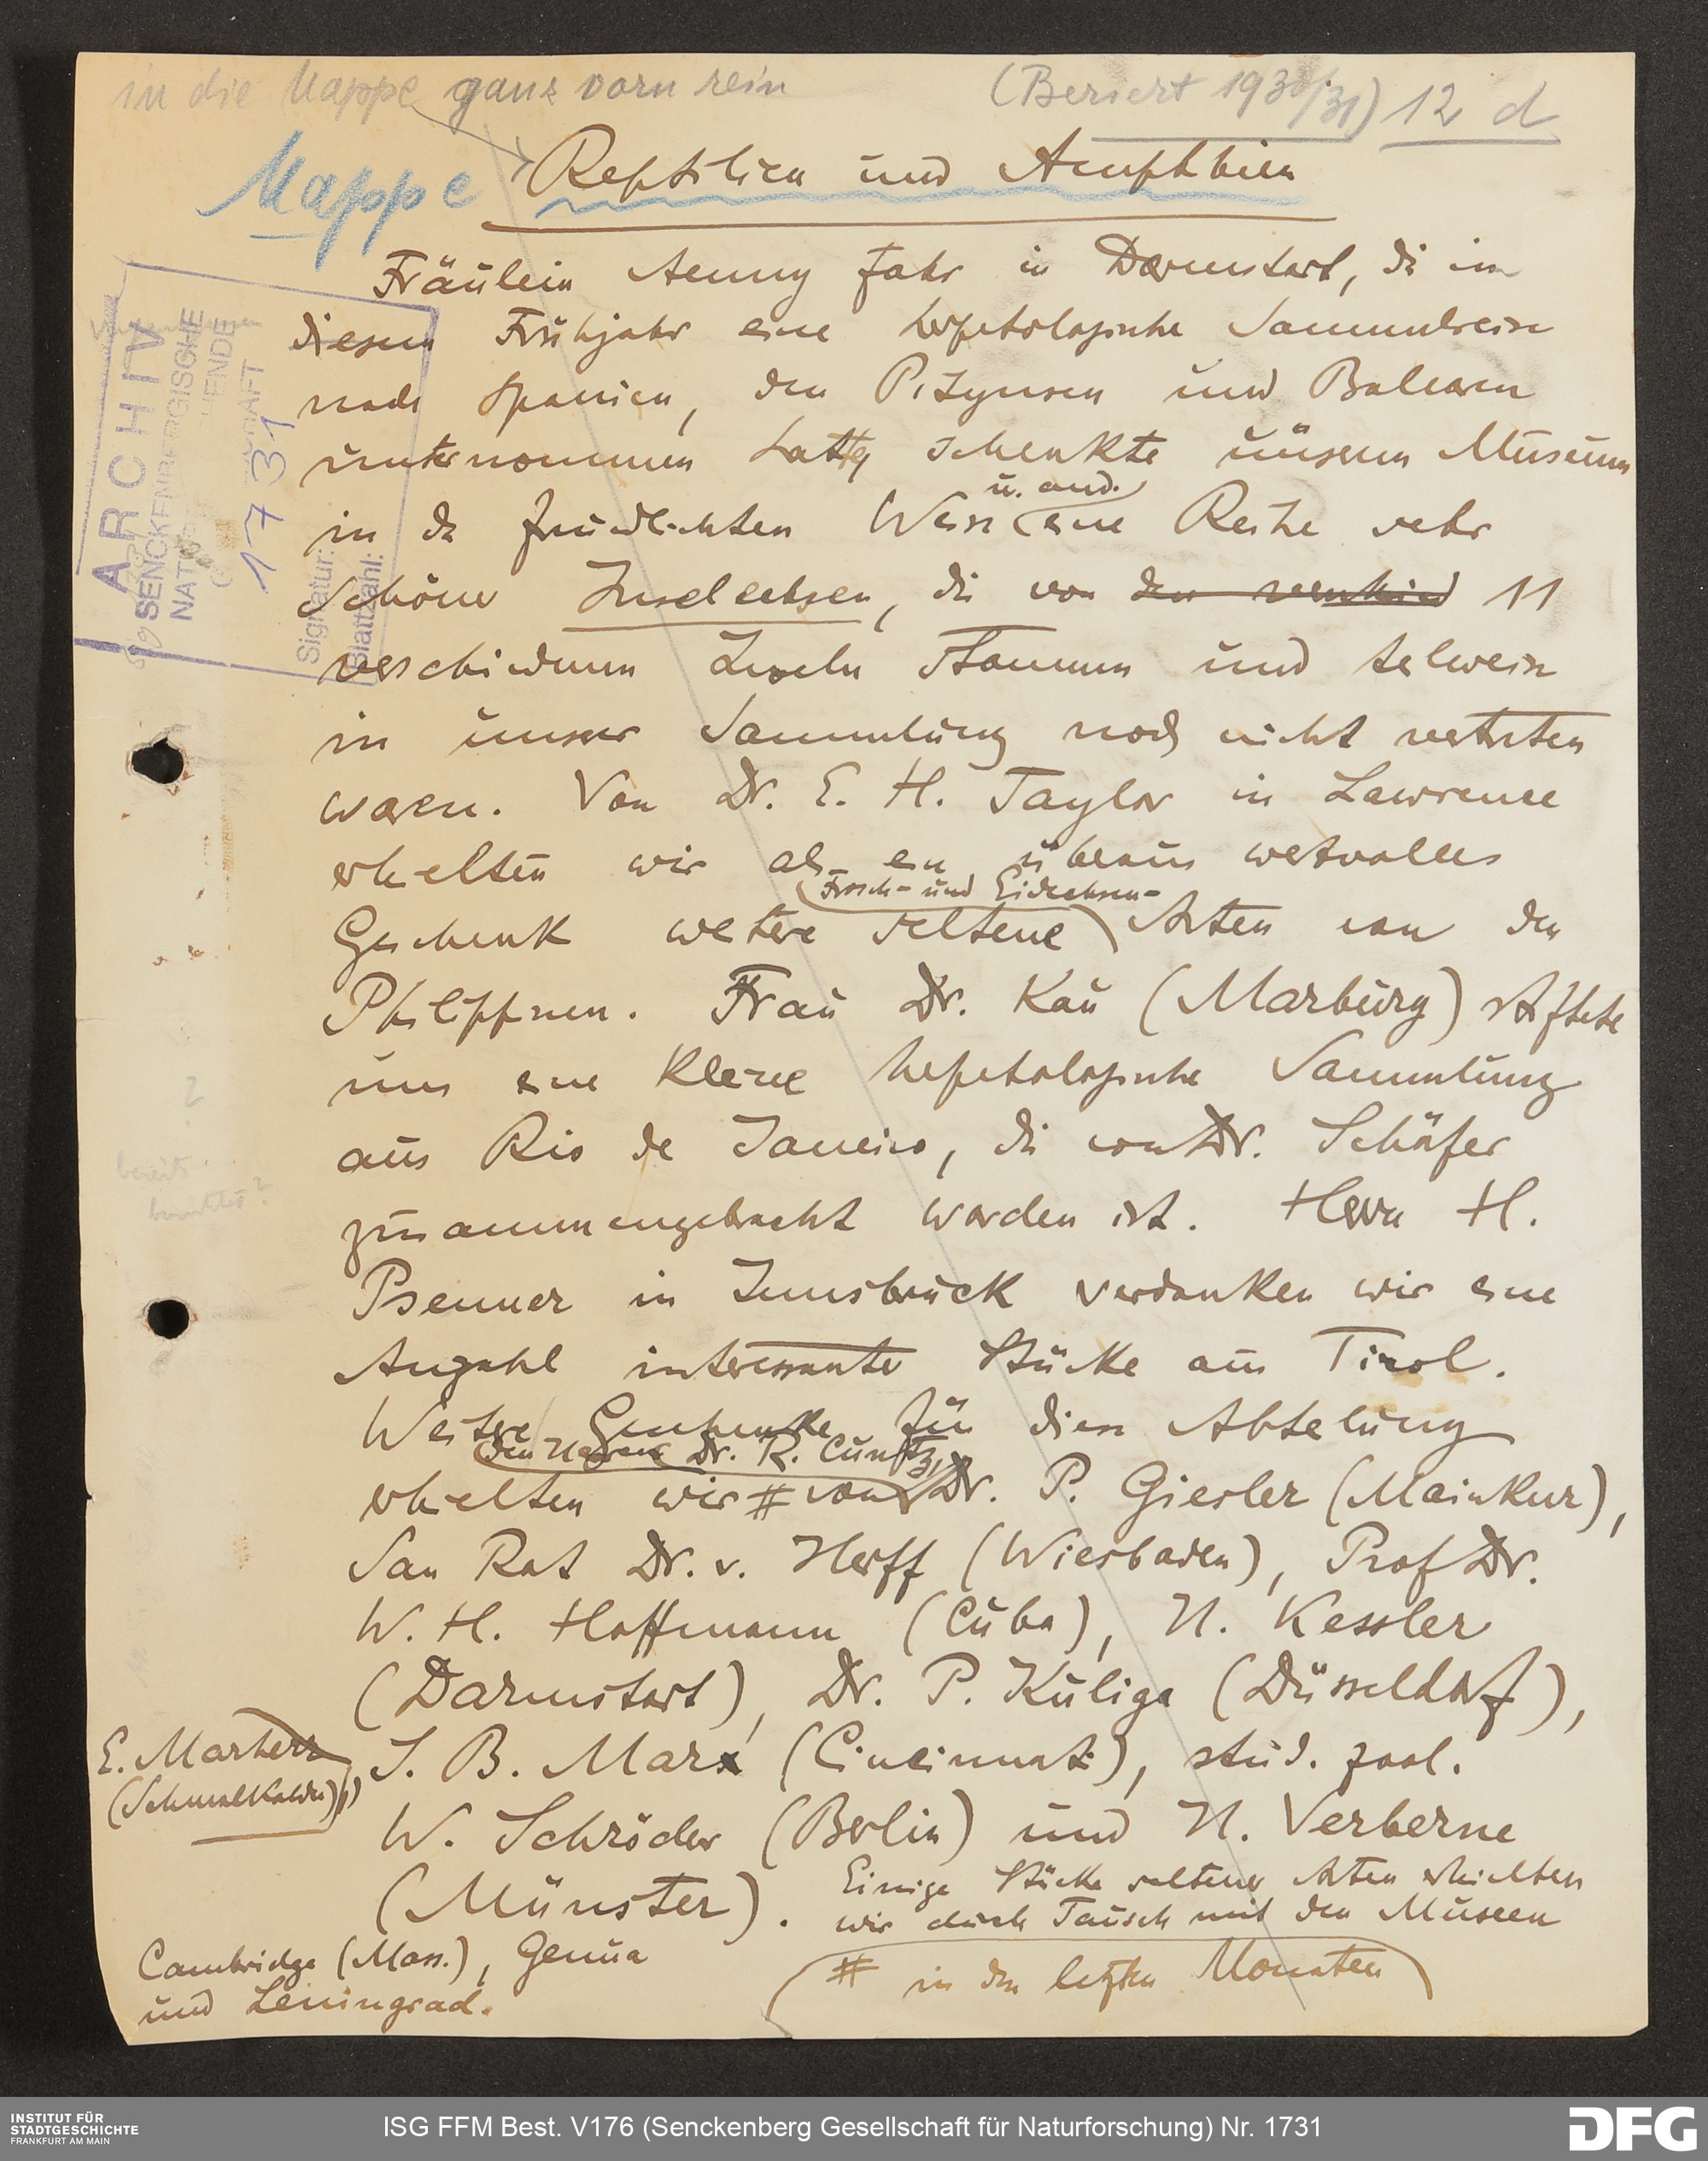 in die Mappe ganz vorn rein
(Bericht 1930/31) 12 d
Mappe
Reptilien und Amphibien
ARCHIV
SENCKENBERGISCHE
1731
Signatur:
Blattzahl:
Fräulein Aenny Fahr in Darmstadt, die im
diesem Frühjahr eine herpetologische Sammelreise
nach Spanien, den Pityusen und Balearen
unternommen hatte, schenkte unserem Museum
in der freundlichsten Weise u. and. eine Reihe sehr
schöner Inseleidechsen, die von den verschied 11
verschiedenen Inseln stammen und teilweise
in unserer Sammlung noch nicht vertreten
waren. Von Dr. E. H. Taylor in Lawrence
erhielten wir als ein überaus wertvolles
Geschenk weitere seltene Frosch- und Eidechsen- Arten von den
Philippinen. Frau Dr. Kau (Marburg) stiftete
uns eine kleine herpetologische Sammlung
aus Rio de Janeiro, die von Dr. Schäfer
zusammengebracht worden ist. Herrn H.
Psenner in Innsbruck verdanken wir eine
Anzahl interessanter Stücke aus Tirol.
Weitere Geschenke für diese Abteilung
erhielten wir # von den Herren Dr. R. Cuntz, Dr. P. Giesler (Mainkur),
San Rat Dr. v. Herff (Wiesbaden), Prof Dr.
W. H. Hoffmann (Cuba), N. Kessler
(Darmstadt), Dr. P. Kuliga (Düsseldorf),
E. Martens
(Schmalkalden),
J. B. Marx (Cincinnati), stud. zool.
W. Schröder (Berlin) und N. Verberne
(Münster). Einige Stücke seltener Arten erhielten
wir durch Tausch mit den Museen
Cambridge (Mass.), Genua
und Leningrad.
# in den letzten Monaten
bereits
berichtet?
INSTITUT FÜR
STADTGESCHICHTE
FRANKFURT AM MAIN
ISG FFM Best. V176 (Senckenberg Gesellschaft für Naturforschung) Nr. 1731
DFG